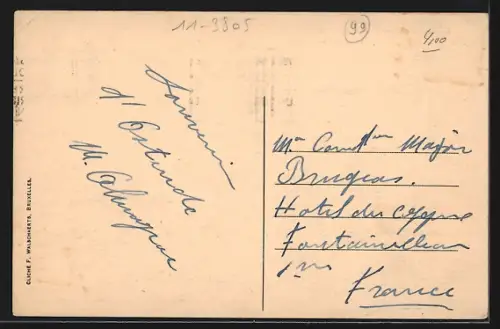 11-3805
99
4/00
Souvenir
d'Ostende
M.
CLICHÉ F. WALSCHAERTS, BRUXELLES.
Major
Brugeas.
Hotel du Cygne
Fontainebleau
France